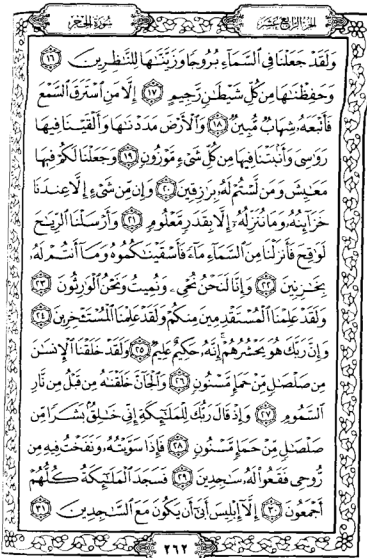 الجزء الرابع عشر
سورة الحجر
وَلَقَدْ جَعَلْنَا فِي ٱلسَّمَآءِ بُرُوجًا وَزَيَّنَّٰهَا لِلنَّٰظِرِينَ ١٦
وَحَفِظْنَٰهَا مِن كُلِّ شَيْطَٰنٍ رَّجِيمٍ ١٧ إِلَّا مَنِ ٱسْتَرَقَ ٱلسَّمْعَ
فَأَتْبَعَهُۥ شِهَابٌ مُّبِينٌ ١٨ وَٱلْأَرْضَ مَدَدْنَٰهَا وَأَلْقَيْنَا فِيهَا
رَوَٰسِيَ وَأَنۢبَتْنَا فِيهَا مِن كُلِّ شَيْءٍ مَّوْزُونٍ ١٩ وَجَعَلْنَا لَكُمْ فِيهَا
مَعَٰيِشَ وَمَن لَّسْتُمْ لَهُۥ بِرَٰزِقِينَ ٢٠ وَإِن مِّن شَيْءٍ إِلَّا عِندَنَا
خَزَآئِنُهُۥ وَمَا نُنَزِّلُهُۥٓ إِلَّا بِقَدَرٍ مَّعْلُومٍ ٢١ وَأَرْسَلْنَا ٱلرِّيَٰحَ
لَوَٰقِحَ فَأَنزَلْنَا مِنَ ٱلسَّمَآءِ مَآءً فَأَسْقَيْنَٰكُمُوهُ وَمَآ أَنتُمْ لَهُۥ
بِخَٰزِنِينَ ٢٢ وَإِنَّا لَنَحْنُ نُحْيِۦ وَنُمِيتُ وَنَحْنُ ٱلْوَٰرِثُونَ ٢٣
وَلَقَدْ عَلِمْنَا ٱلْمُسْتَقْدِمِينَ مِنكُمْ وَلَقَدْ عَلِمْنَا ٱلْمُسْتَـْٔخِرِينَ ٢٤
وَإِنَّ رَبَّكَ هُوَ يَحْشُرُهُمْ إِنَّهُۥ حَكِيمٌ عَلِيمٌ ٢٥ وَلَقَدْ خَلَقْنَا ٱلْإِنسَٰنَ
مِن صَلْصَٰلٍ مِّنْ حَمَإٍ مَّسْنُونٍ ٢٦ وَٱلْجَآنَّ خَلَقْنَٰهُ مِن قَبْلُ مِن نَّارِ
ٱلسَّمُومِ ٢٧ وَإِذْ قَالَ رَبُّكَ لِلْمَلَٰٓئِكَةِ إِنِّي خَٰلِقٌۢ بَشَرًا مِّن
صَلْصَٰلٍ مِّنْ حَمَإٍ مَّسْنُونٍ ٢٨ فَإِذَا سَوَّيْتُهُۥ وَنَفَخْتُ فِيهِ مِن
رُّوحِي فَقَعُوا۟ لَهُۥ سَٰجِدِينَ ٢٩ فَسَجَدَ ٱلْمَلَٰٓئِكَةُ كُلُّهُمْ
أَجْمَعُونَ ٣٠ إِلَّآ إِبْلِيسَ أَبَىٰٓ أَن يَكُونَ مَعَ ٱلسَّٰجِدِينَ ٣١
٢٦٢